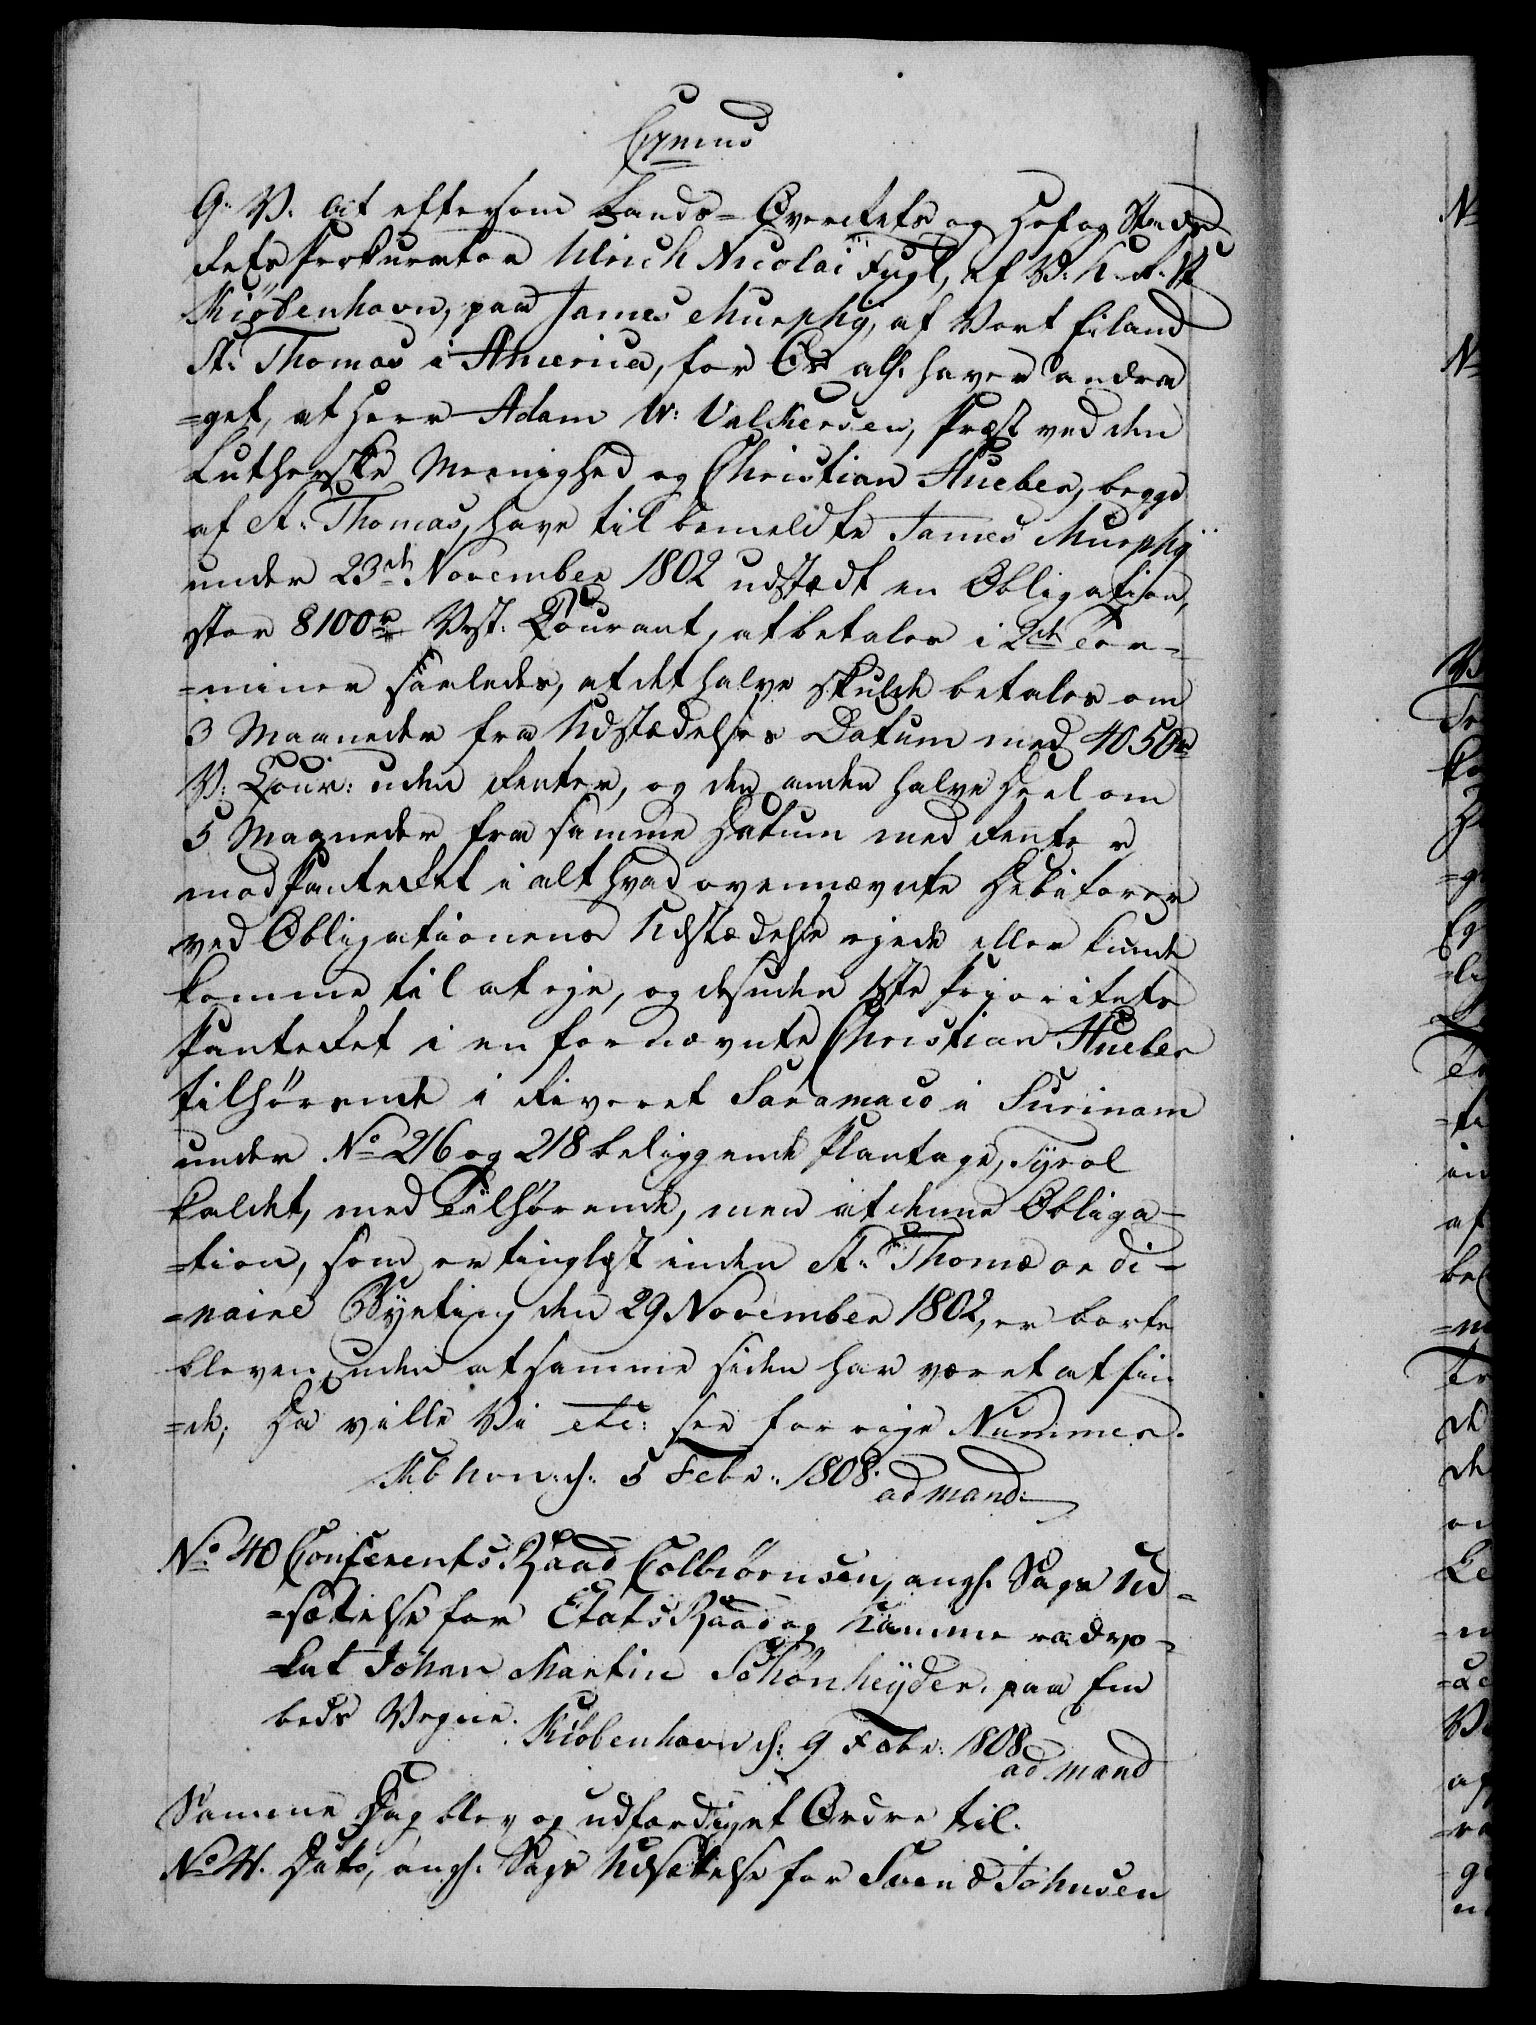 Exmus
G: V: At eftersom Lands-Overrets og Hof og Stads
Rets Prokurator Ulrich Nicolai Fugl, af V: K: R: St
Kiöbenhavn, paa James Murphÿ, af Vort Eiland
St: Thomas i America, for Os alh: haver andra
=get, at Herr Adam W: Valckersen, Præst ved den
Lutherske Meenighed og Christian Hueber, begge
af St: Thomas, have til bemeldte James Murphÿ
under 23de November 1802 udstædt en Obligation,
stor 8100rd Vest: Courant, at betales i 2de Ter=
=miner saaledes, at det halve skulde betales om
3 Maaneder fra Udstædelses Datum med 4050rd
V: Cour: uden Renter, og den anden halve Deel om
5 Maaneder fra samme Datum med Renter
mod Panteret i alt hvad ovennævnte Debitorer
ved Obligationens Udstædelse ejede eller kunde
komme til at eje, og desuden 1ste Prioritets
Panteret i en fornævnte Christian Hueber
tilhörende i Riveret Saramaco i Surinam
under No 216 og 218 beliggende Plantage, Tÿrol
kaldet, med Tilhörende, men at denne Obliga-
=tion, som er tinglæst inden St: Thomæ ordi-
=naire Bÿeting den 29 November 1802, er borte
bleven, uden at samme siden har været at fin
=de; Da ville Vi etc: see forrige Nummer.
Kbhvn: d: 5 Febr: 1808. ad mand:
No 40 Conferents Raad Colbiörnsen, angl: Sags Ud=
=sættelse for Etats Raad og Kammeradvo=
=kat Johan Martin Schönheÿder, paa Em
beds Vegne.
Kiöbenhavn d: 9 Febr: 1808.
ad mand
Samme Dag blev og udfærdiget Ordre til.
No 41. Dito, angl: Sags Udsættelse for Svend Johnsen